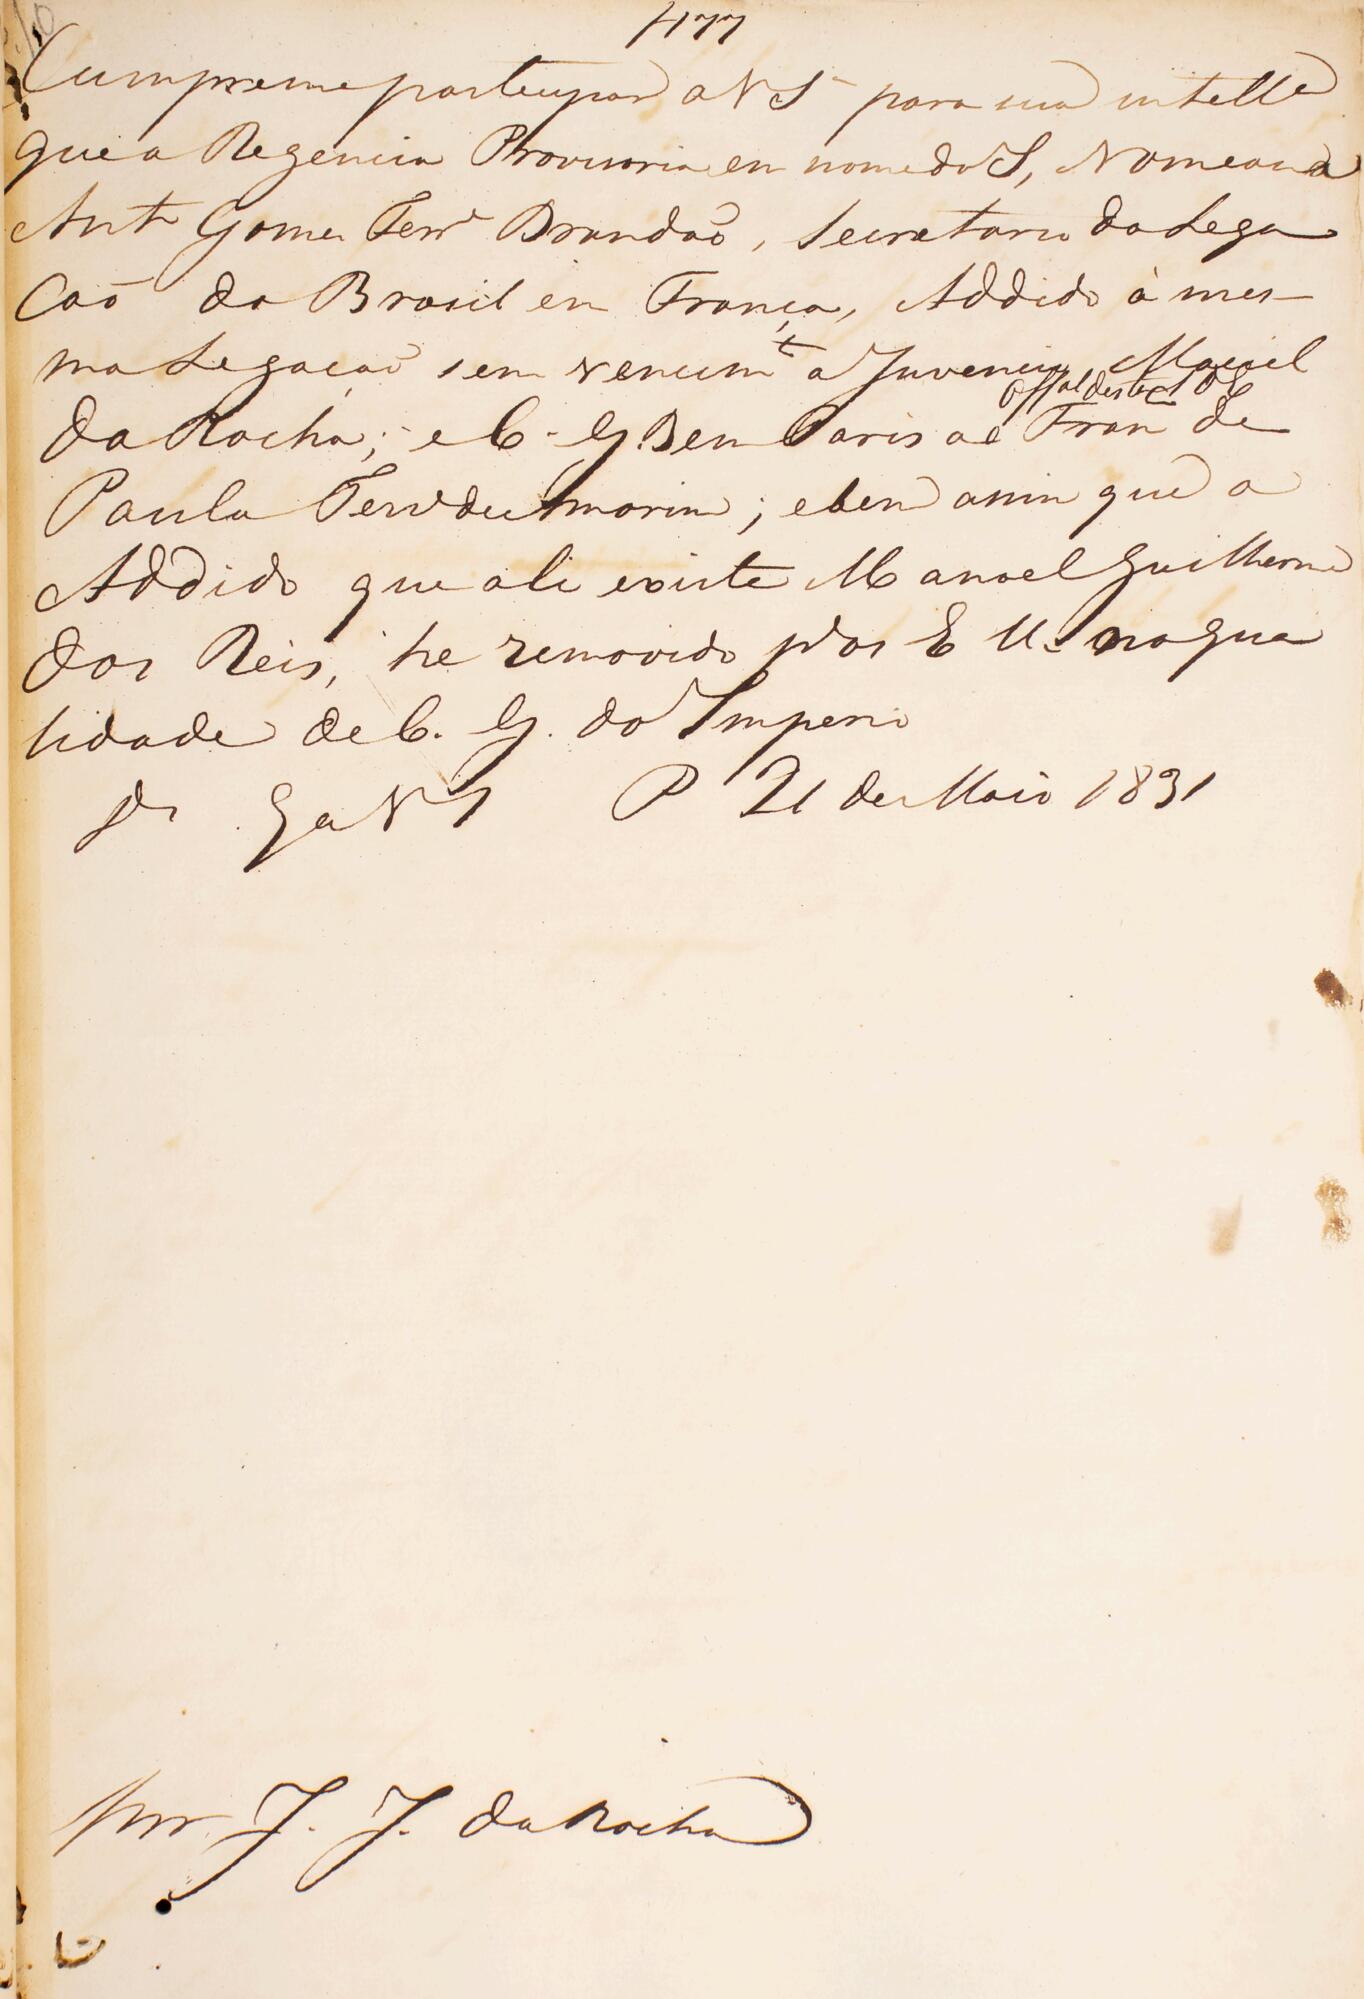 477
Cumpre me participar a V S para sua intellª
que a Regencia Provisoria em nome do I, Nomeou a
Antº Gomes Ferrª Brandão, Secretario da Lega
cão do Brasil em França, Addido á mes-
ma Legação sem vencimto a Juvencio Maciel
da Rocha; e C. G. B em Paris ao Offal desta S de E Franco de
Paula Ferrª de Amorim; e bem assim que o
Addido que ali existe Manoel Guilherme
dos Reis, he removido pª os E U. na qua
lidade de C. G. do Imperio
Ds Ge a V S P 21 de Maio 1831
Snr J. J. da Rocha